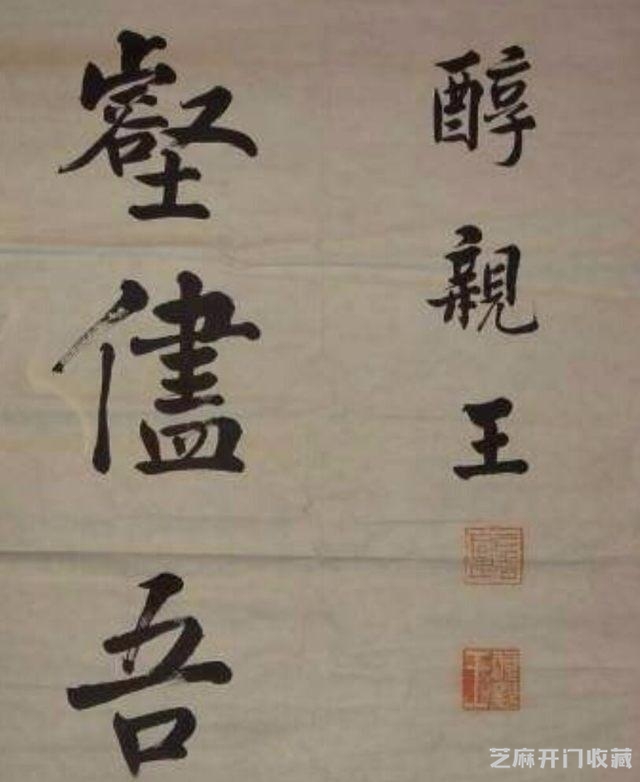 醇親王
壑儘吾
芝麻开门收藏